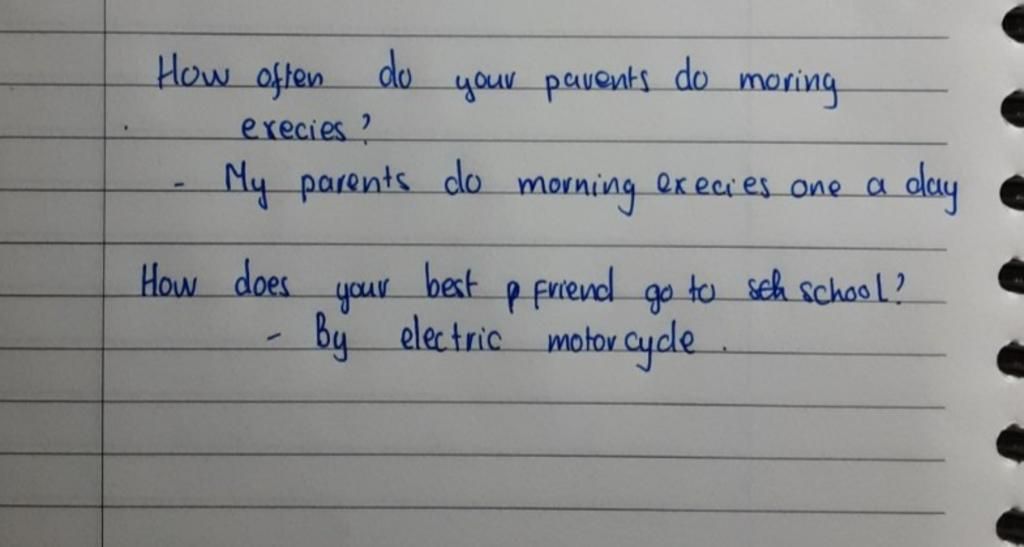 How often do your parents do moring
execies?
- My parents do morning execies one a day
How does your best p friend go to sch school?
- By electric motorcycle.